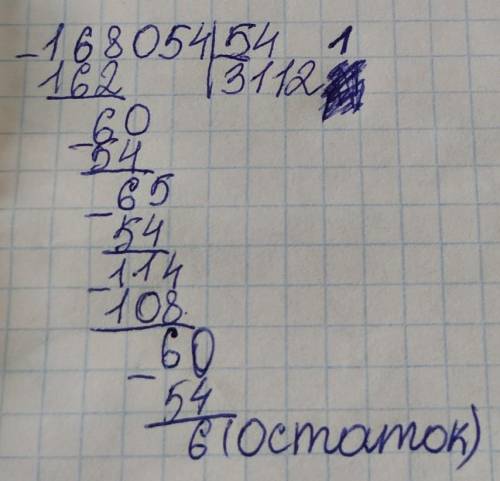 -168054|54 1
162 3112
-60
54
-65
54
-114
108
-60
54
6 (остаток)